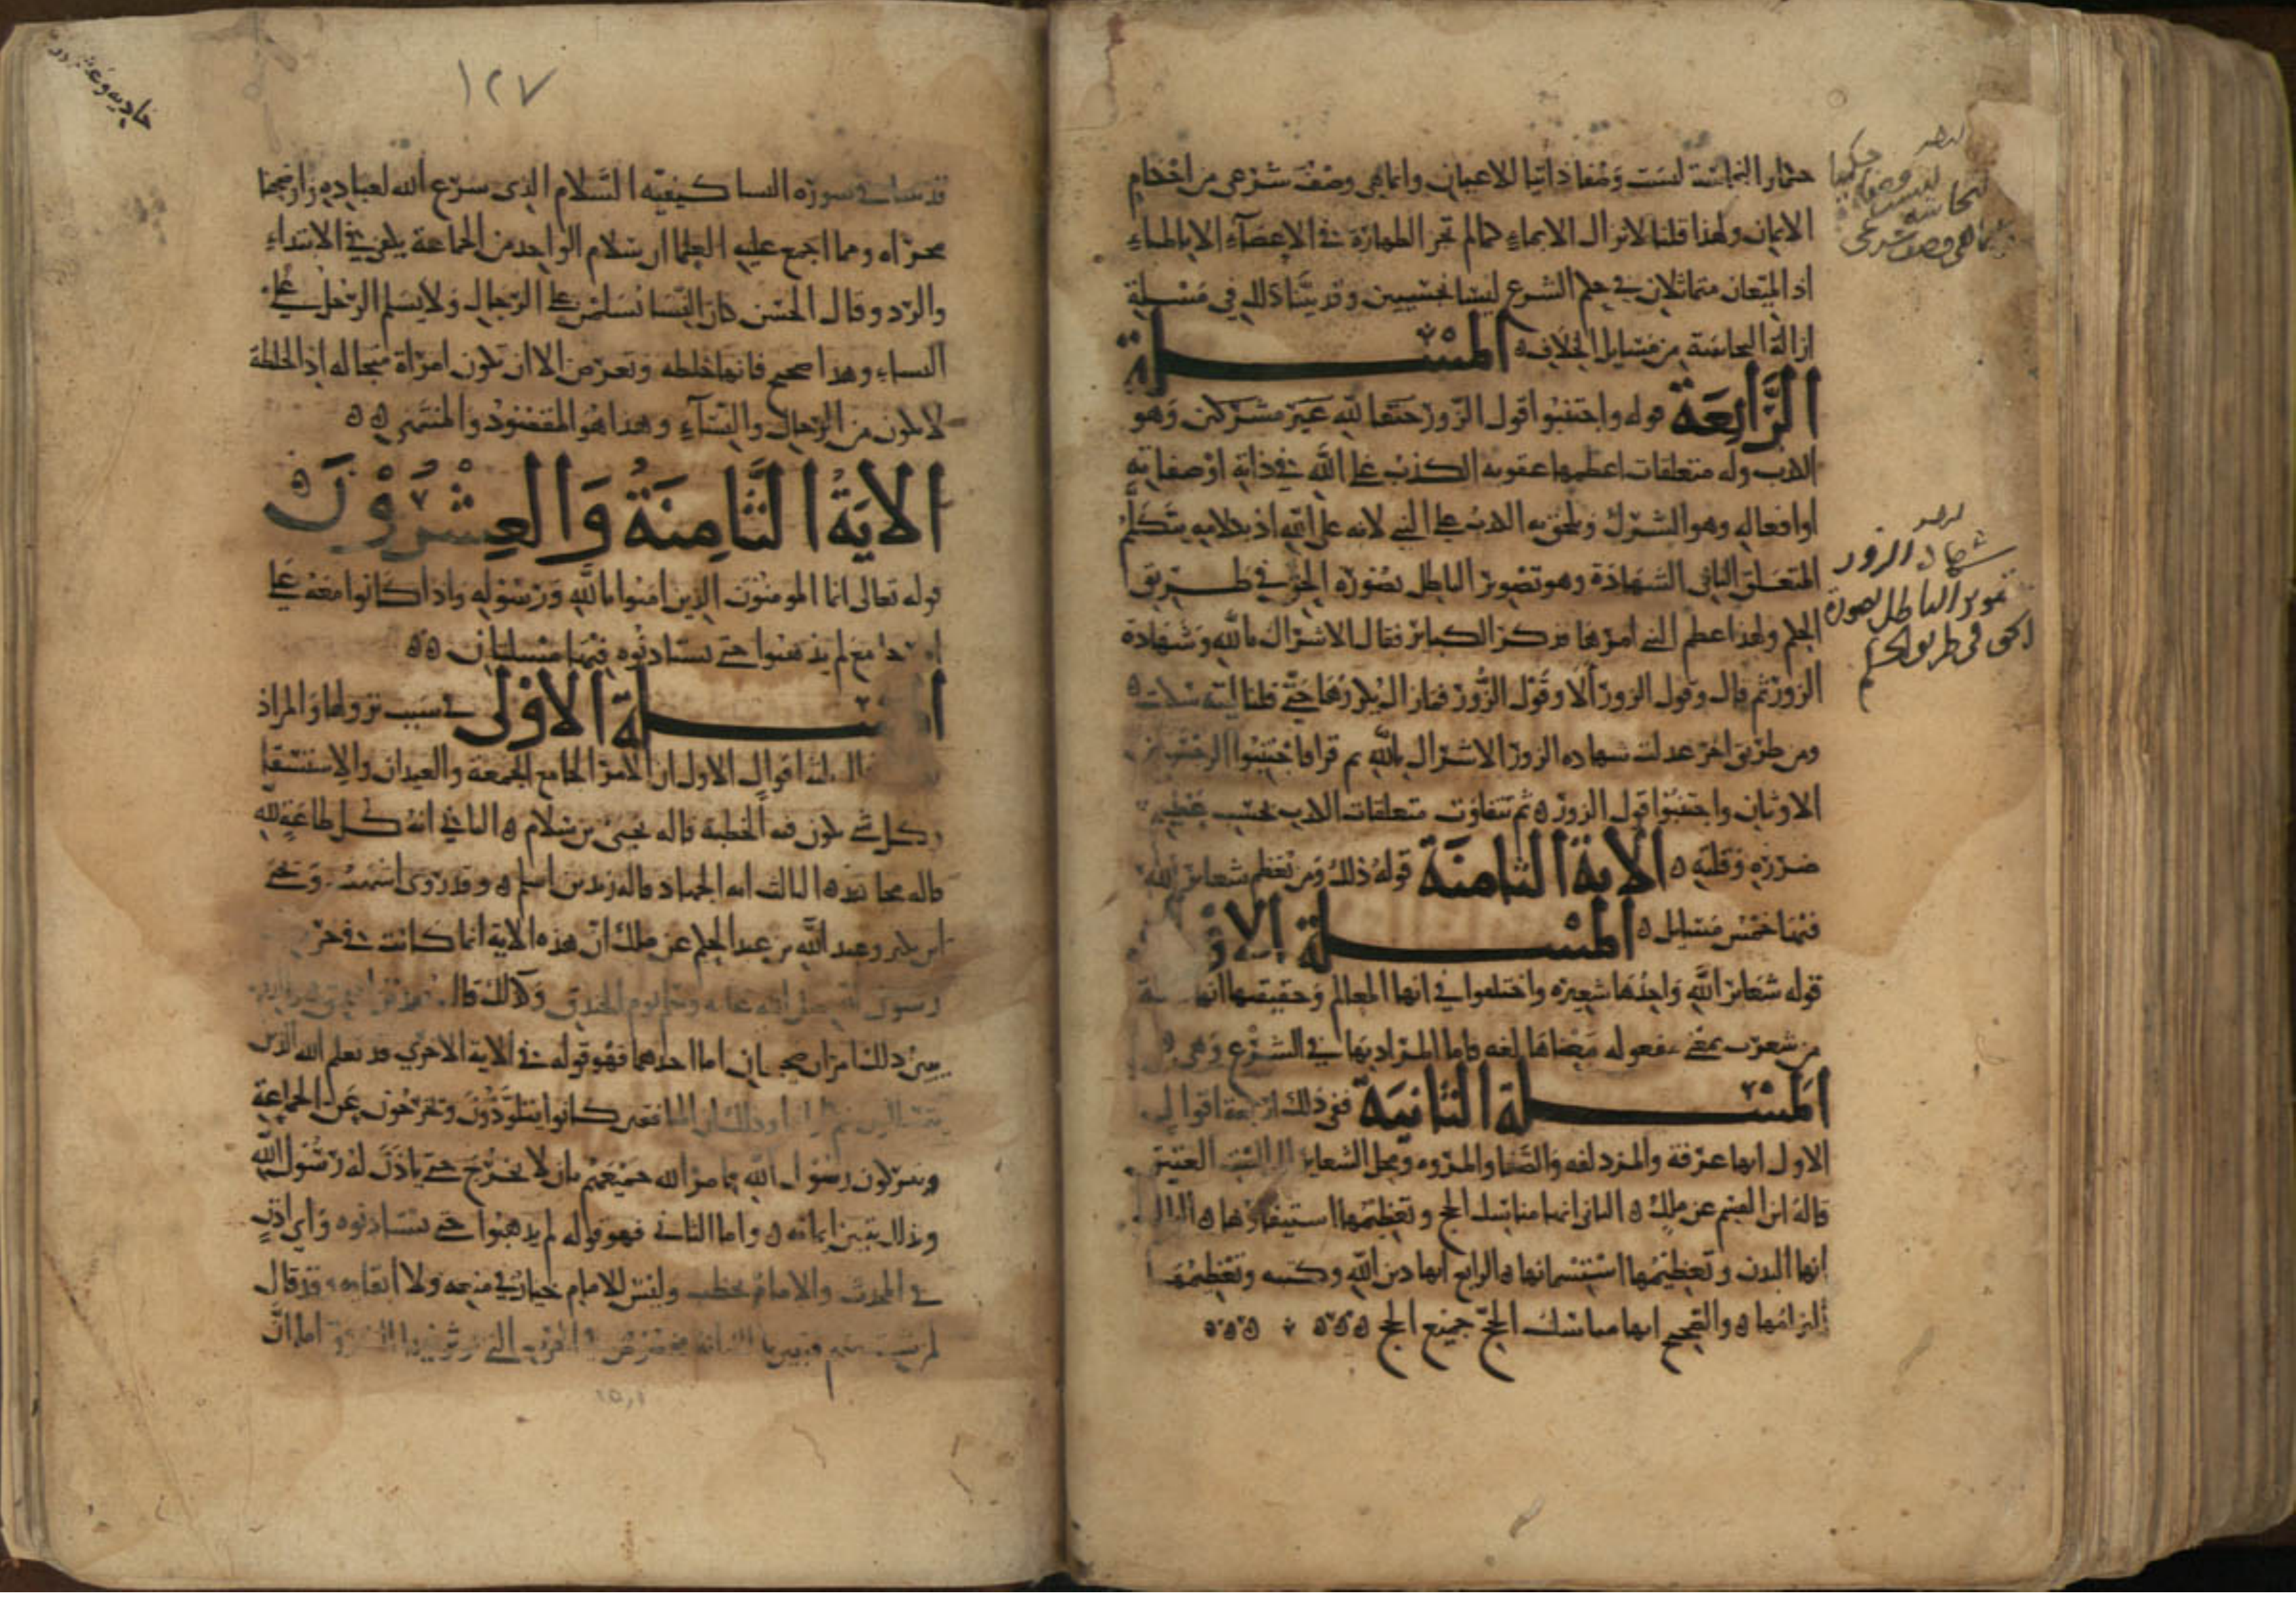 حتما را النجاسة ليست وصفا ذاتيا للاعيان وانما هي وصف شرعي من احكام
الايمان ولهذا قلنا لا تزال الا بماء كما لم تجز الطهارة في الاعضاء الا بالماء
اذ المنعان متماثلان في حكم الشرع ليسا بحسيين وقد بينا ذلك في مسلة
ازالة النجاسة من مسايل الخلاف ه المسلة
الرابعة قوله واجتنبوا قول الزور حنفا لله غير مشركين وهو
الكذب وله متعلقات اعظمها عقوبه الكذب على الله في ذاته او صفاته
او افعاله وهو الشرك ويلحق به الكذب على النبي لانه على الله اذ بكلامه يتكلم
المتعلق الثاني الشهادة وهو تصوير الباطل بصورة الحق في طريق
الحكم ولهذا عظم النبي امرها فذكر الكبائر فقال الاشراك بالله وشهادة
الزور ثم قال وقول الزور ألا وقول الزور فما زال يكررها حتى قلنا ليته سكت ه
ومن طريق اخر عدلت شهاده الزور الاشراك بالله ثم قرا فاجتنبوا الرجس من
الاوثان واجتنبوا قول الزور ه ثم تتفاوت متعلقات الكذب بحسب عظيم
ضرره وقلته ه الاية الثامنة قوله ذلك ومن يعظم شعاىر الله
فيها خمس مسايل ه المسلة الاو
قوله شعائر الله واحدها شعيرة واختلفوا في انها المعالم وحقيقتها انها
من شعرت بمعنى مفعوله معناها لغه فاما المراد بها في الشرع وهي
المسلة الثانية ففي ذلك اربعة اقوال
الاول انها عرفة والمزدلفه والصفا والمروه ومحل الشعاير الى البيت العتيق
قاله ابن القسم عن ملك ه الثاني انها مناسك الحج وتعظيمها استيفاؤها ه الثالث
انها البدن وتعظيمها استسمانها ه الرابع انها دين الله وكتبه وتعظيمها
التزامها ه والصحيح انها مناسك الحج جميع الحج ه ه ه
شهادة الزور
تصوير الباطل بصورة
الحق في طريق الحكم
١٢٧
حادية وعشر
قد بينا في سورة النسا كيفيه السلام الذي شرع الله لعباده واوضحنا
مجراه ومما اجمع عليه العلما ان سلام الواحد من الجماعة يكفي في الابتداء
والرد وقال الحسن كان النسا يسلمن على الرجال ولا يسلم الرجل على
النساء وهذا صحيح فانها خلطه وتعرض الا ان تكون امراة متجاله اذ الخلطة
لا تكون من الرجال والنساء وهذا هو المقصود والمنتهى ه ه
الاية الثامنة والعشرون
قوله تعالى انما المومنون الذين امنوا بالله ورسوله واذا كانوا معه على
امر جامع لم يذهبوا حتى يستاذنوه فيها مسلتان ه ه
المسلة الاولى في سبب نزولها والمراد
ثلاثة اقوال الاول ان الامر الجامع الجمعة والعيدان والاستسقا
وكل شي يكون فيه الخطبة قاله يحيى بن سلام ه الثاني انه كل طاعة لله
قاله مجاهد ه الثالث انه الجهاد قاله زيد بن اسلم ه وقد روى اشهب ويحيى
ابن بكير وعبد الله بن عبد الحكم عن ملك ان هذه الاية انما كانت في حرب
رسول الله صلى الله عليه وسلم يوم الخندق وكذلك قال
يبين ذلك امران صحيحان اما احدهما فهو قوله في الاية الاخرى قد يعلم الله الذين
يتسللون منكم لواذا وذلك ان المنافقين كانوا يتلوذون ويخرجون عن الجماعة
ويتركون رسول الله فامر الله جميعهم بان لا يخرج حتى ياذن له رسول الله
وبذلك يتبين ايمانه ه واما الثاني فهو قوله لم يذهبوا حتى يستاذنوه واي اذن
في المحدث والامام يخطب وليس للامام خيار في منعه ولا ابقائه وقد قال